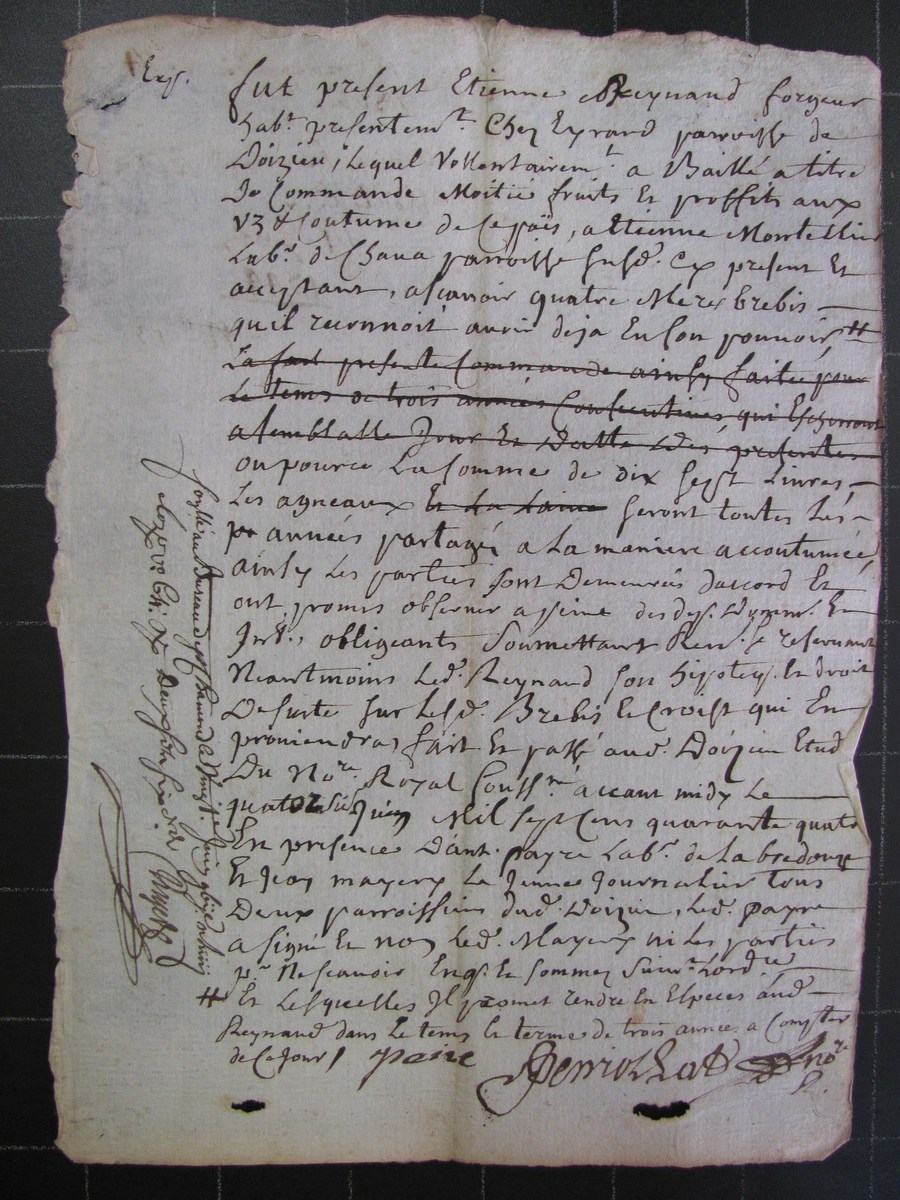 Exp.
fut present Etienne Reynaud forgeur
hab.t presentem.t Chez Eyrard parroisse de
Doizieu, lequel Vollontairem.t a Baillé a titre
De Commande Moitié fruits Et proffits aux
Coutume de Ce païs, a Etienne Montellier
Lab.r de Chaua parroisse susd. Cy present Et
acceptant, ascauoir quatre Meres brebis —
quil reconnoit auoir deja En son pouuoir #
La fait presente Commande ainsy faite pour
Le tems de trois années Consecutiues qui Escherront
a semblable Jour Et Datte Des presentes
ou pour ce La somme de dix sept Liures, —
Les agneaux Et La Laine seront toutes Les —
années partagé a La maniere accoutumée,
ainsy Les parties sont Demeurés daccord Et
ont promis obseruer a peine des
obligeants Soumettant Ren. se reseruant
Neantmoins Led. Reynaud son hippoteq. Et droit
De suite sur Lesd. Brebis Le Croist qui En
prouiendra, fait Et passé aud. Doizieu Etud
Du No.re Royal Souss.né auant midy Le —
quatorze Juin Mil Sept Cens quarante quatre
En presence D'ant. payre Lab.r de La bredouze
Et Jean mayery Le Jeune Journalier tous
Deux parroissiens dud. Doizieu, Led. payre
a signé Et non Led. Mayery ni Les parties
p.r Ne scauoir Enq. Et sommez Suiu.t Lord.ce
# Et Lesquelles Il promet rendre En Especes aud —
Reynaud dans Le tems Et terme de trois années a Compter
de Ce Jour / payre
no.re
au Bureau de St Chamond le Vingt Juin
Deux sols six d.